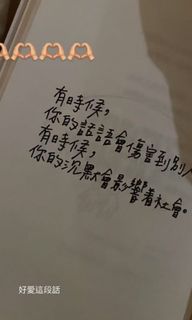 有時候，
你的話語會傷害到別人
有時候，
你的沉默會影響着社會。
好愛這段話